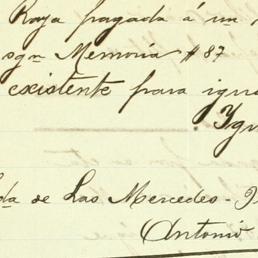 Raya pagada á un
sgn Memoria #87
existente para igu
Yg
da de Las Mercedes - J
Antonio